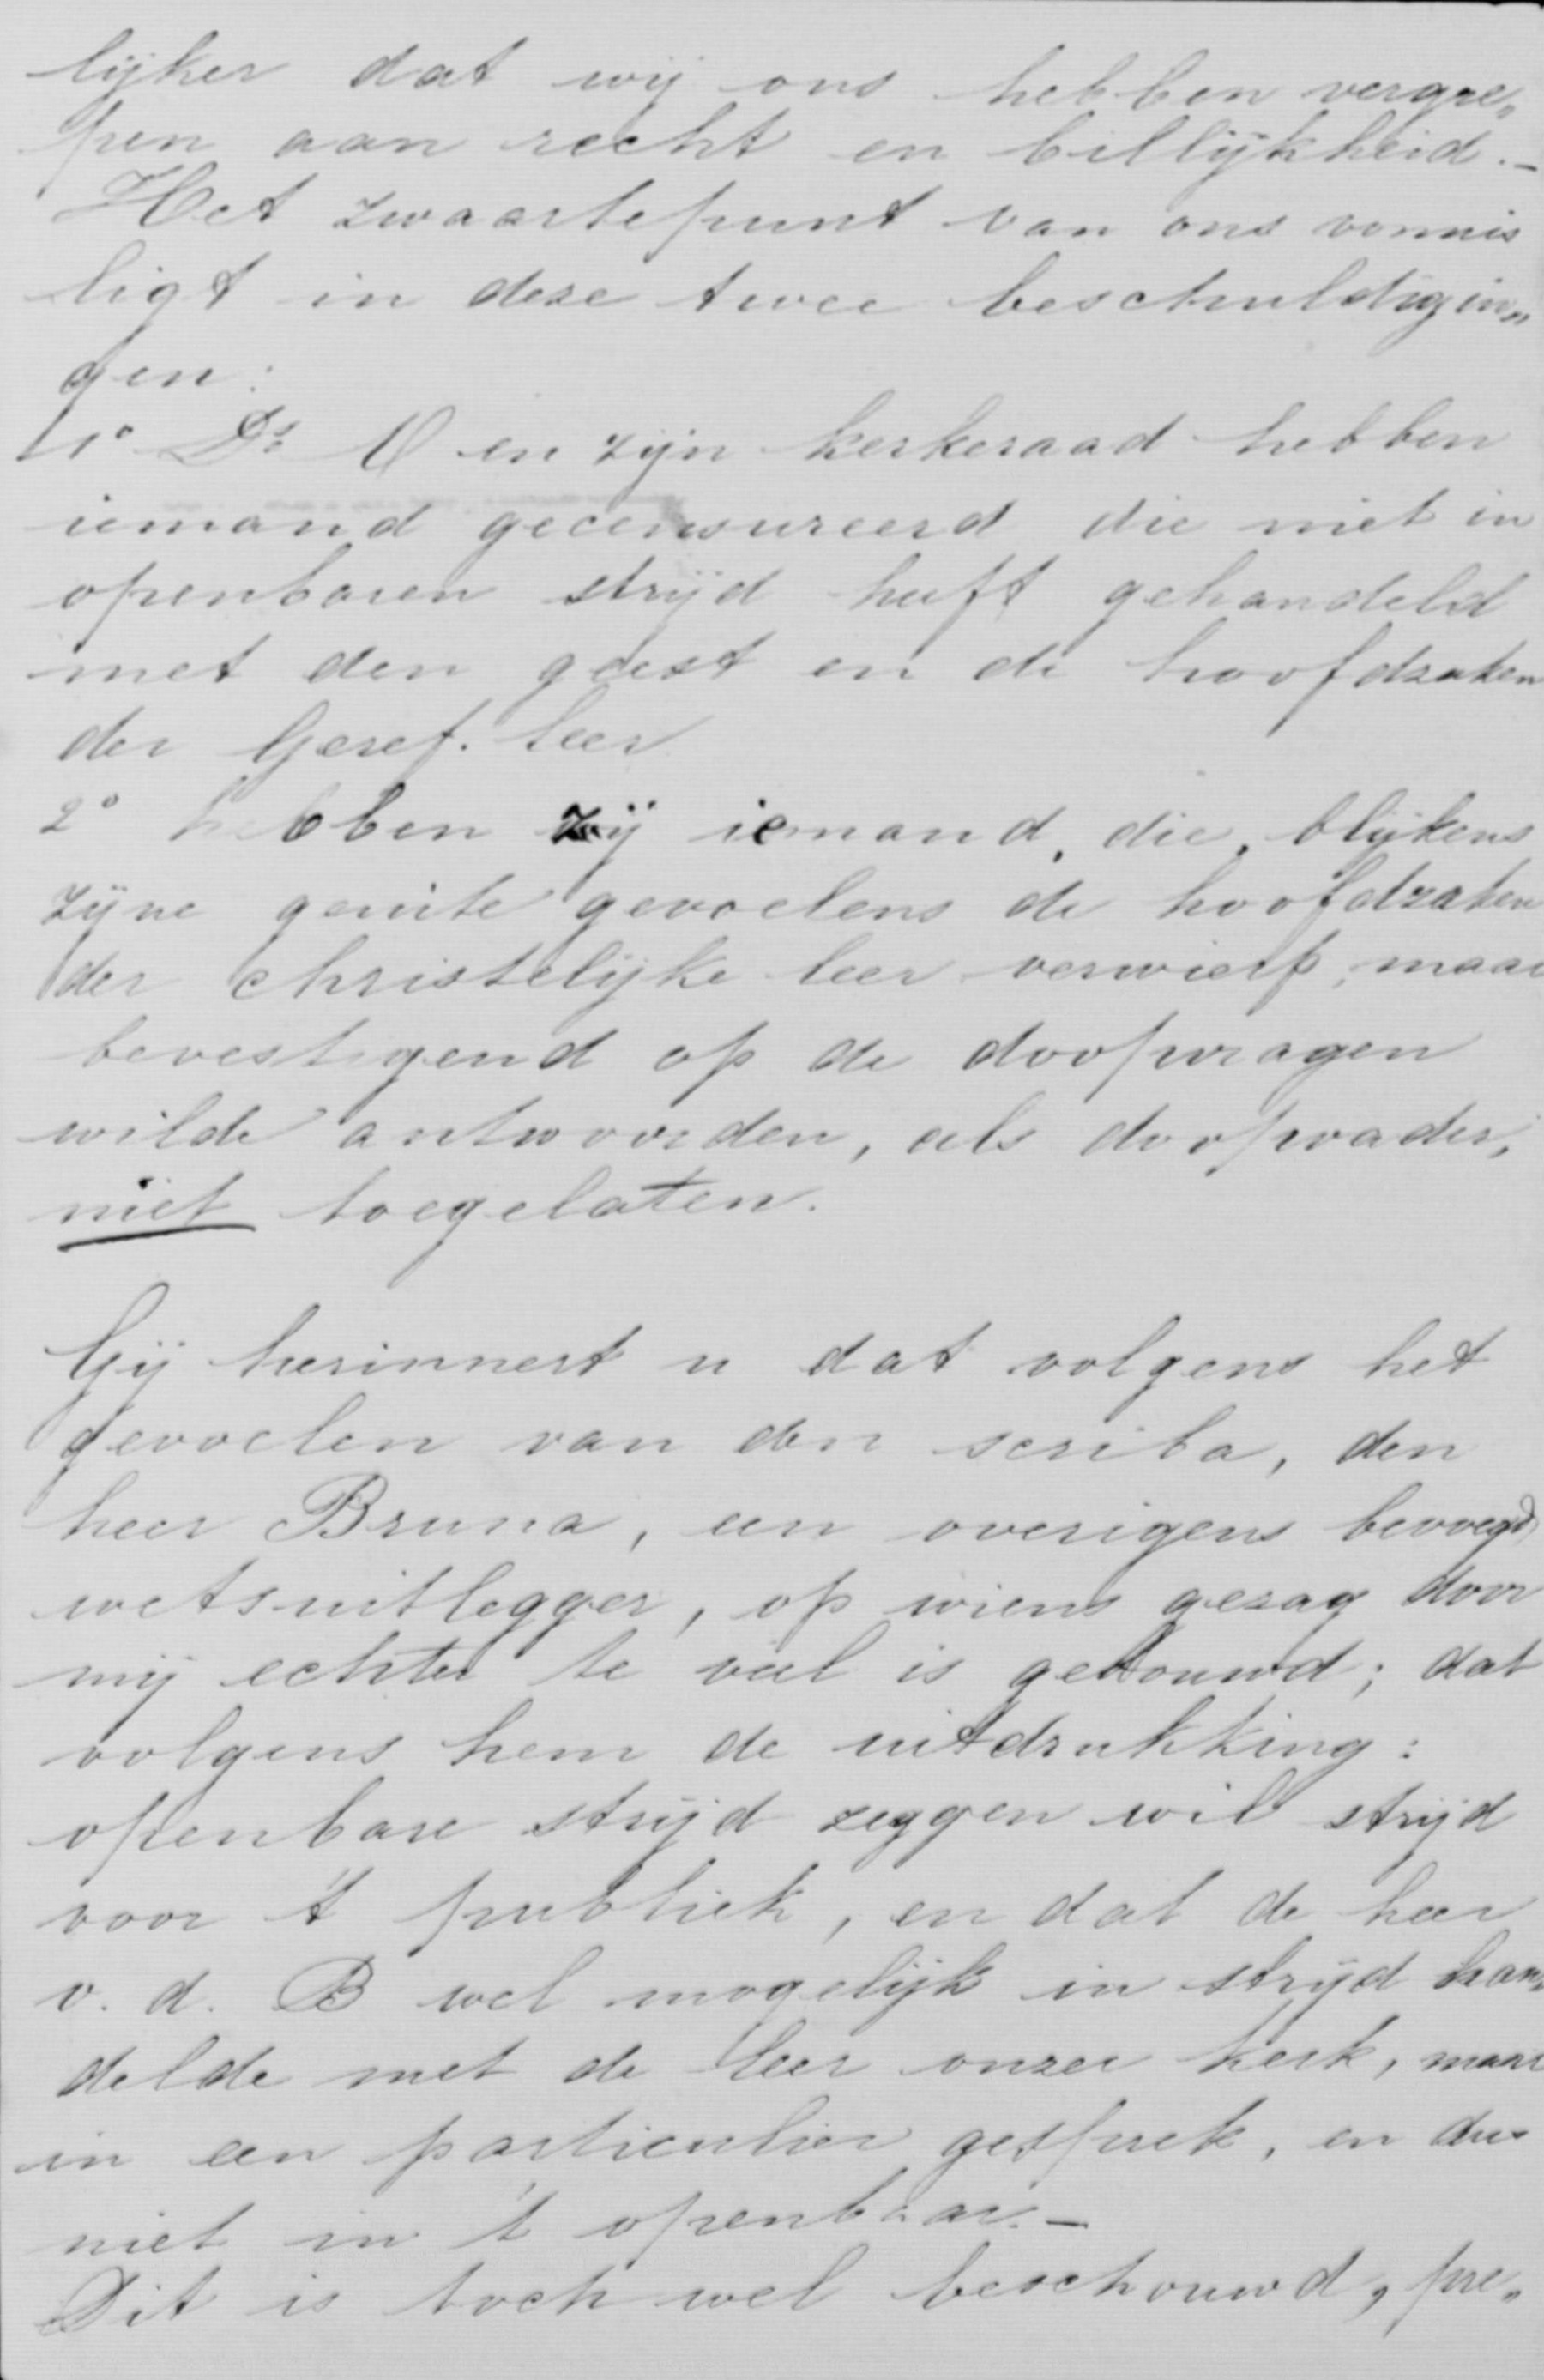 lijker dat wij ons hebben vergre„
pen aan recht en billijkheid. –
Het zwaartepunt van ons vonnis
ligt in deze twee beschuldigin„
gen:
1° Ds. en zijn kerkeraad hebben
iemand gecensureerd die niet in
openbaren strijd heeft gehandeld
met den geest en de hoofdzaken
der Geref. leer
2° hebben zij iemand, die, blijkens
zijne geuite gevoelens de hoofdzaken
der christelijke leer verwierp, maar
bevestigend op de doopvragen
wilde antwoorden, als doopvader,
niet toegelaten.
Gij herinnert u dat volgens het
gevoelen van den scriba, den
heer Bruna, een overigens bevoegd
wetsuitlegger, op wiens gezag door
mij echter te veel is gebouwd; dat
volgens hem de uitdrukking:
openbare strijd zeggen wil strijd
voor 't publiek, en dat de heer
v. d. B wel mogelijk in strijd han„
delde met de leer onzer kerk, maar
in een particulier gesprek, en dus
niet in 't openbaar. –
Dit is toch wel beschouwd, pre„